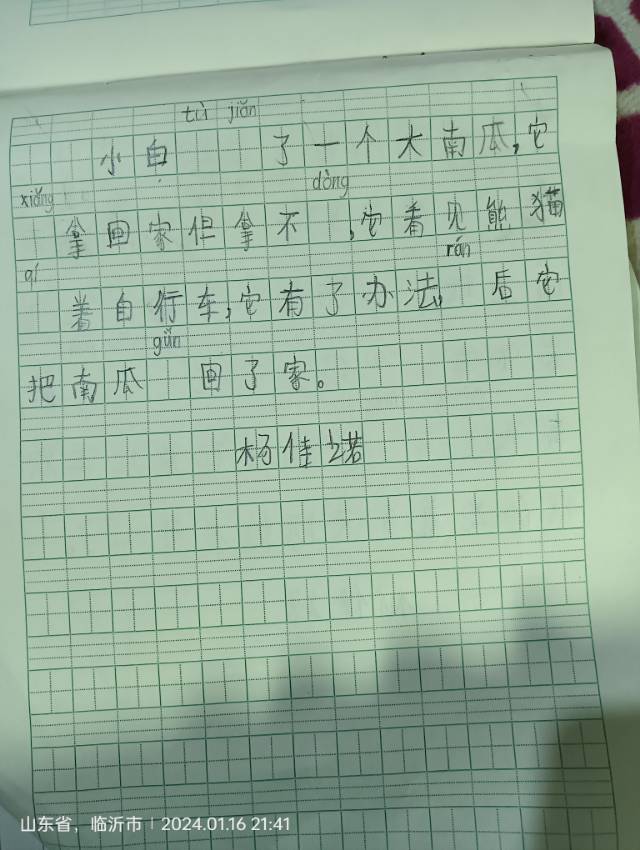 tù jiǎn
小白 了一个大南瓜,它
xiǎng dòng
拿回家但拿不 ,它看见熊猫
qí rán
着自行车,它有了办法, 后它
gǔn
把南瓜 回了家。
杨佳诺
山东省，临沂市 | 2024.01.16 21:41